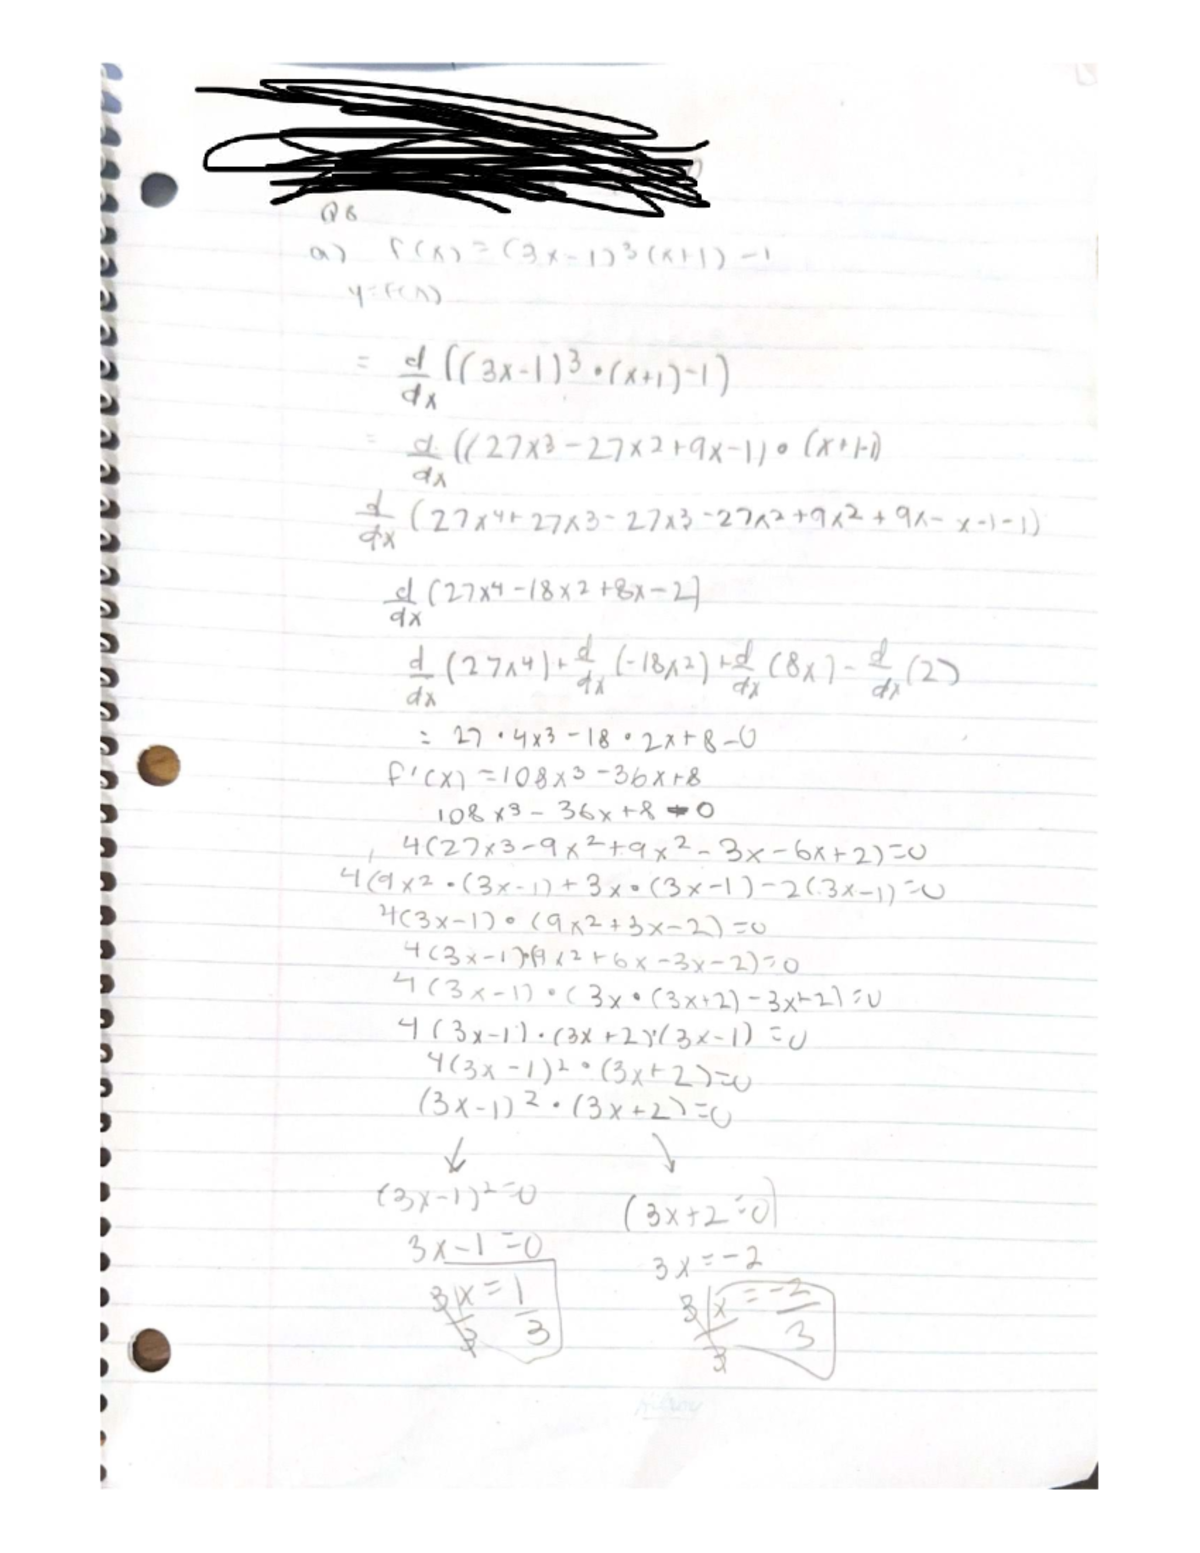 Q8
a) f(x) = (3x-1)3(x+1)-1
y=f(x)
= d/dx ((3x-1)3•(x+1)-1)
= d/dx ((27x3-27x2+9x-1)•(x+1-1)
d/dx (27x4+27x3-27x3-27x2+9x2+9x-x-1-1)
d/dx (27x4-18x2+8x-2)
d/dx (27x4)+d/dx (-18x2)+d/dx (8x)-d/dx (2)
= 27•4x3-18•2x+8-0
f'(x) =108x3-36x+8
108x3-36x+8=0
4(27x3-9x2+9x2-3x-6x+2)=0
4(9x2•(3x-1)+3x•(3x-1)-2(3x-1)=0
4(3x-1)•(9x2+3x-2)=0
4(3x-1)•(9x2+6x-3x-2)=0
4(3x-1)•(3x•(3x+2)-3x+2)=0
4(3x-1)•(3x+2)•(3x-1)=0
4(3x-1)2•(3x+2)=0
(3x-1)2•(3x+2)=0
↓ ↘
(3x-1)2=0 (3x+2=0)
3x-1=0 3x=-2
3x/3=1/3 3x/3=-2/3